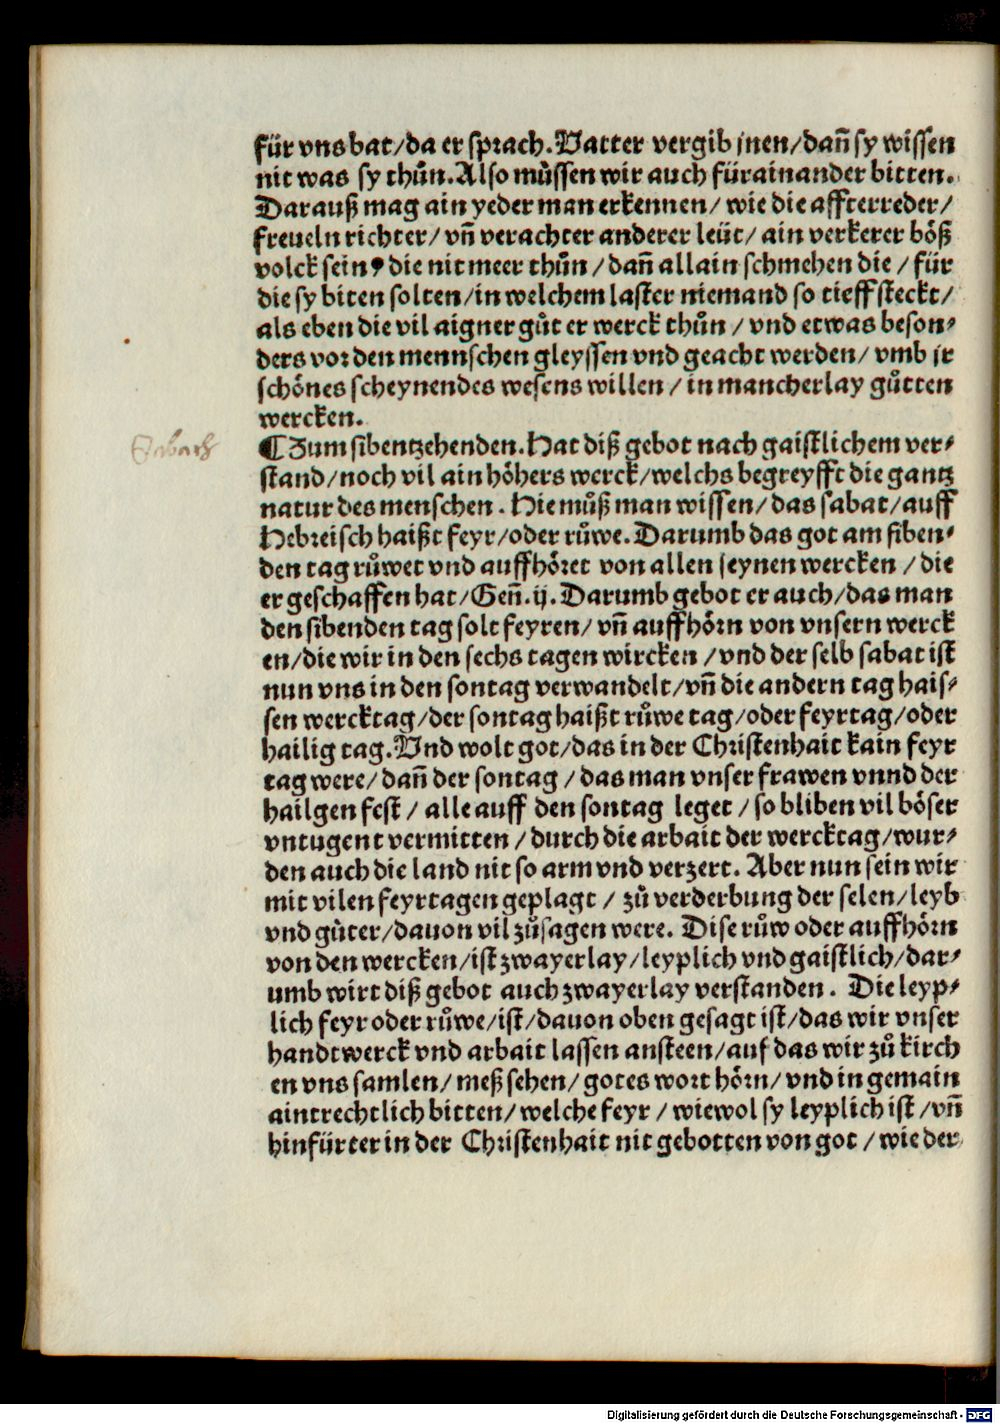 für vns bat/da er sprach. Vatter vergib jnen/dañ sy wissen
nit was sy thůn. Also můssen wir auch fürainander bitten.
Darauß mag ain yeder man erkennen/ wie die affterreder/
freueln richter/ vñ verachter anderer leüt/ ain verkerer böß
volck sein? die nit meer thůn/ dañ allain schmehen die/ für
die sy biten solten/in welchem laster niemand so tieff steckt/
als eben die vil aigner gůter werck thůn/ vnd etwas beson⸗
ders vor den mennschen gleyssen vnd geacht werden/ vmb jr
schönes scheynendes wesens willen/ in mancherlay gůtten
wercken.
Sabath
¶ Zum sibentzehenden. Hat diß gebot nach gaistlichem ver⸗
stand/noch vil ain höhers werck/welchs begreyfft die gantz
natur des menschen. Hie můß man wissen/das sabat/auff
Hebreisch haißt feyr/oder růwe. Darumb das got am siben⸗
den tag růwet vnd auffhöret von allen seynen wercken/ die
er geschaffen hat/Geñ.ij. Darumb gebot er auch/das man
den sibenden tag solt feyren/ vñ auffhörn von vnsern werck
en/die wir in den sechs tagen wircken/vnd der selb sabat ist
nun vns in den sontag verwandelt/vñ die andern tag hais⸗
sen wercktag/der sontag haißt růwe tag/oder feyrtag/oder
hailig tag. Vnd wolt got/das in der Christenhait kain feyr
tag were/ dañ der sontag/ das man vnser frawen vnnd der
hailgen fest/ alle auff den sontag leget/ so bliben vil böser
vntugent vermitten/ durch die arbait der wercktag/wur⸗
den auch die land nit so arm vnd verzert. Aber nun sein wir
mit vilen feyrtagen geplagt/ zů verderbung der selen/leyb
vnd gůter/dauon vil zůsagen were. Dise růw oder auffhörn
von den wercken/ist zwayerlay/leyplich vnd gaistlich/dar⸗
umb wirt diß gebot auch zwayerlay verstanden. Die leyp⸗
lich feyr oder růwe/ist/dauon oben gesagt ist/das wir vnser
handtwerck vnd arbait lassen ansteen/auf das wir zů kirch
en vns samlen/ meß sehen/ gotes wort hörn/ vnd in gemain
aintrechtlich bitten/ welche feyr/ wiewol sy leyplich ist/vñ
hinfürter in der Christenhait nit gebotten von got/ wie der
Digitalisierung gefördert durch die Deutsche Forschungsgemeinschaft - DFG